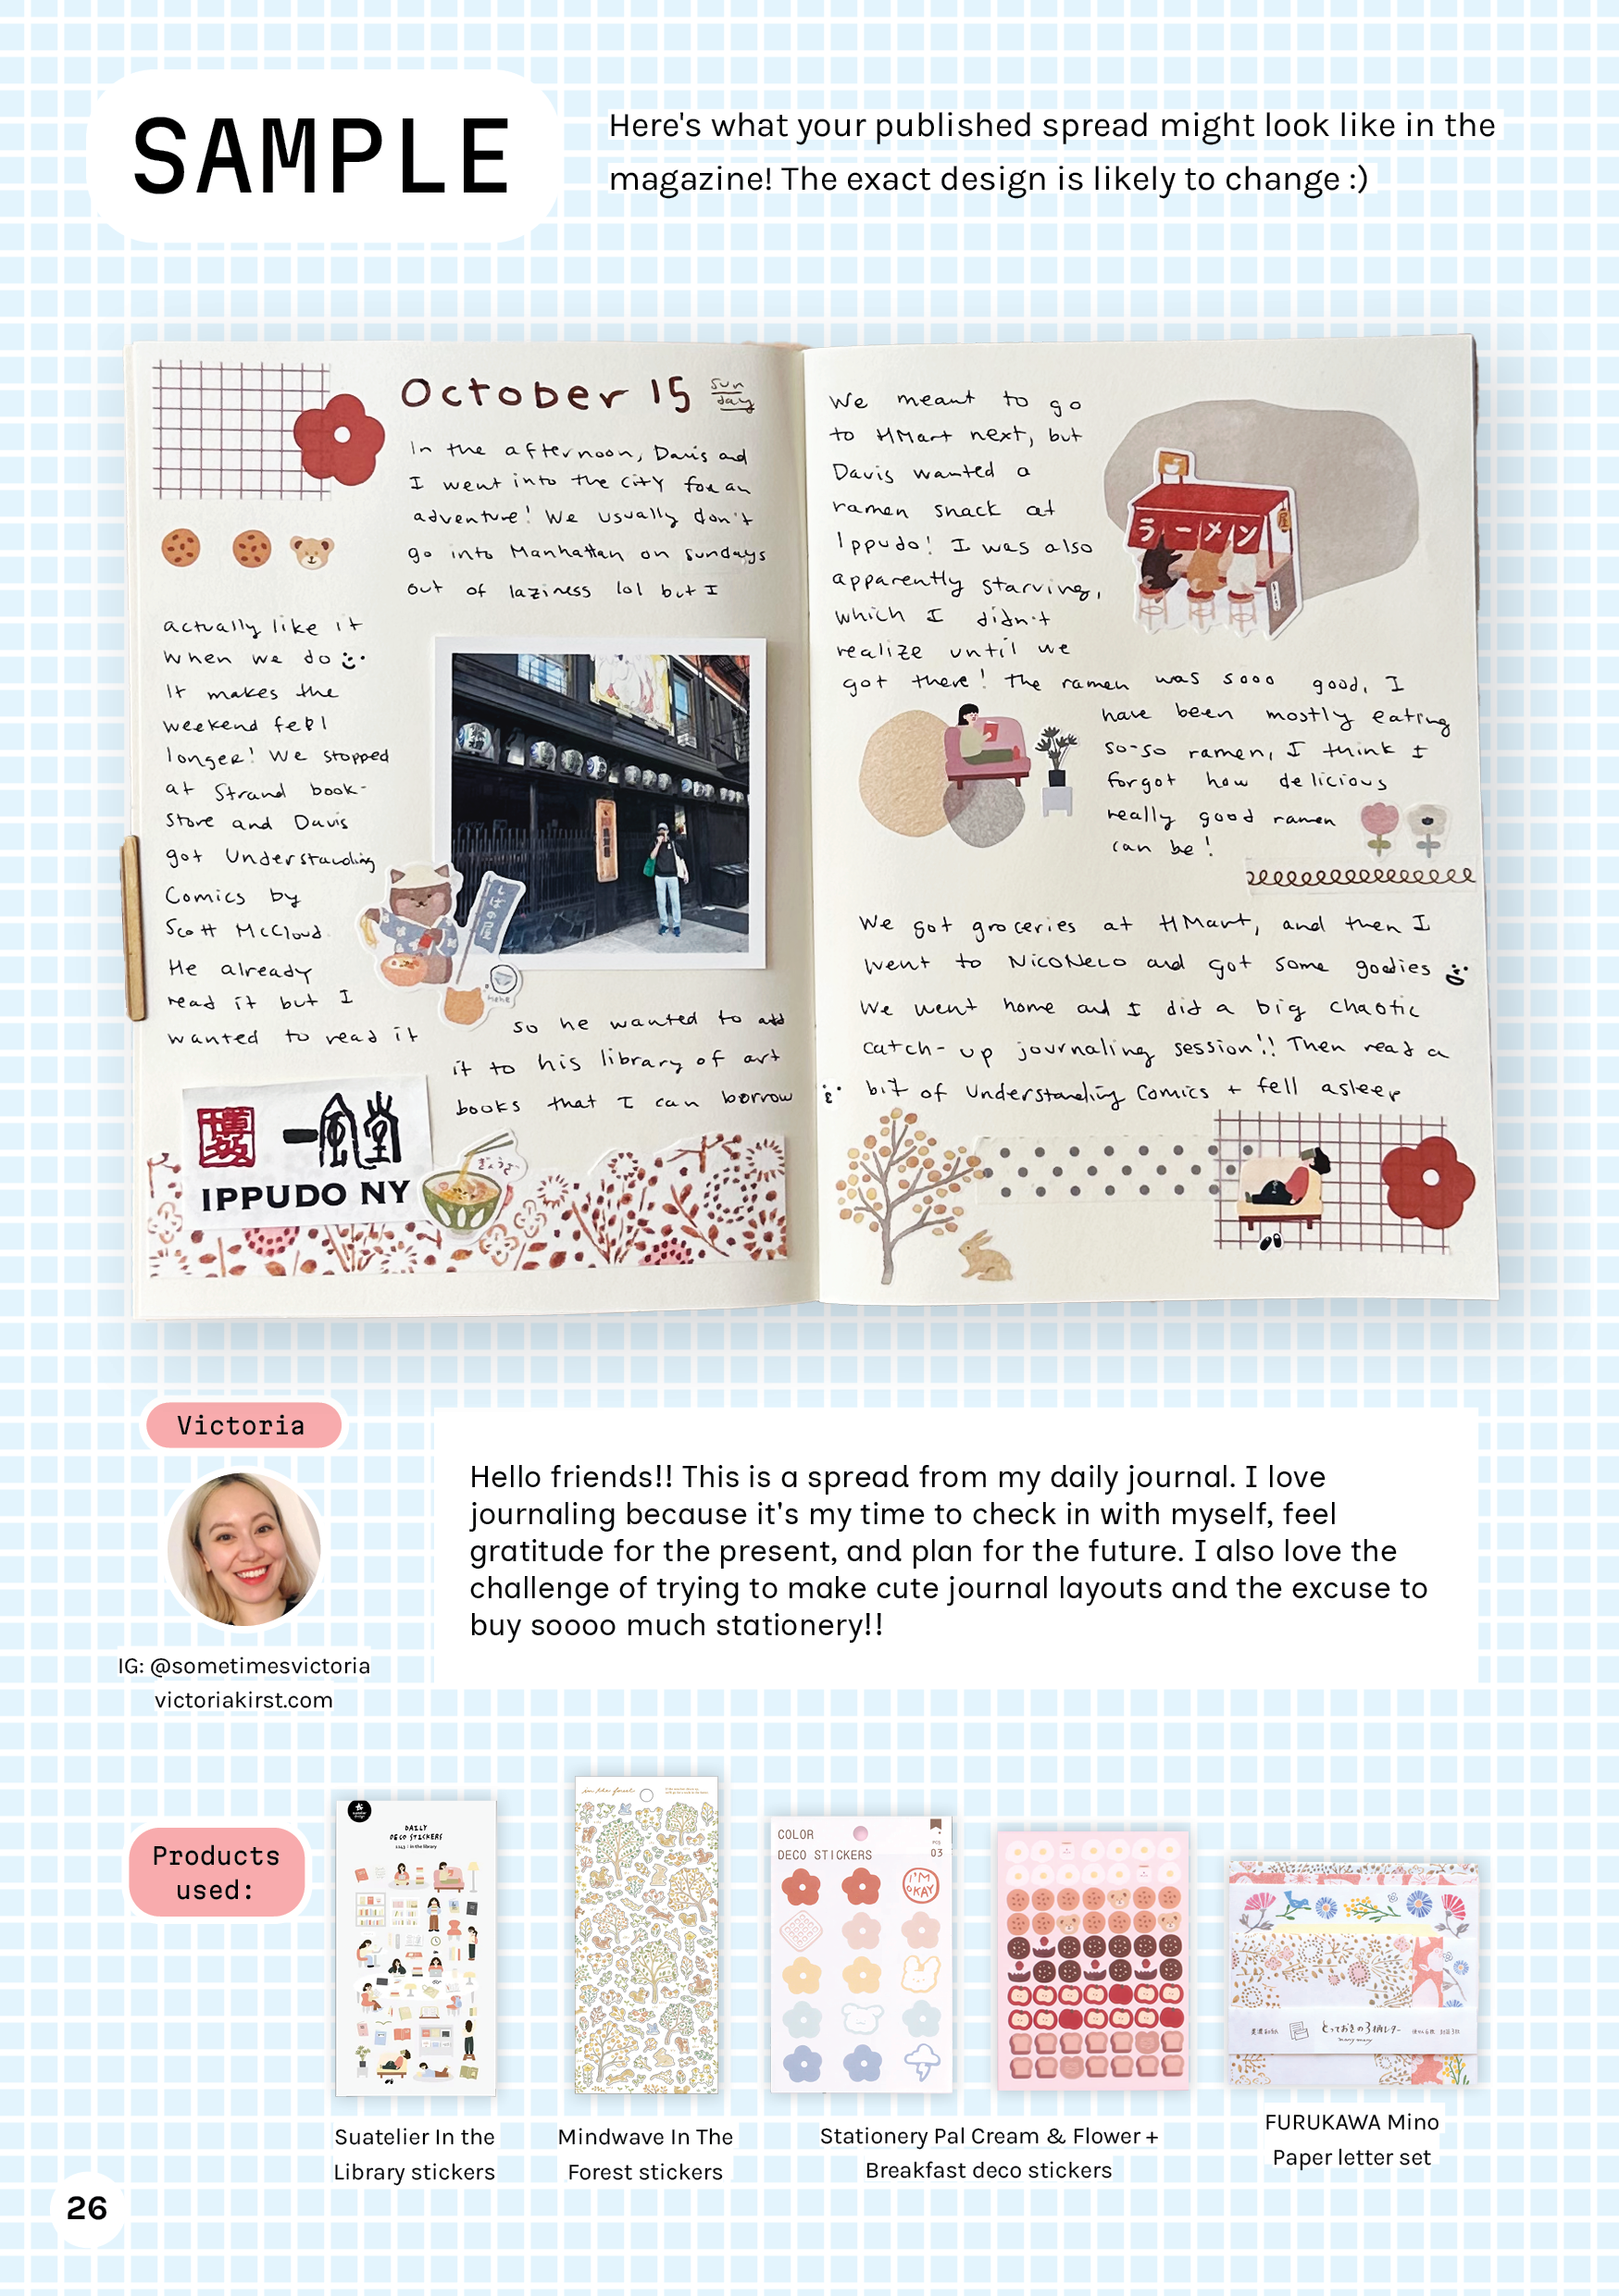 SAMPLE
Here's what your published spread might look like in the
magazine! The exact design is likely to change :)
October 15
Sun
day
In the afternoon, Davis and
I went into the city for an
adventure! We usually don't
go into Manhattan on sundays
out of laziness lol but I
actually like it
when we do
It makes the
weekend feel
longer! We stopped
at Strand book-
store and Davis
got Understanding
Comics by
Scott McCloud.
He already
read it but I
wanted to read it
so he wanted to add
it to his library of art
books that I can borrow
しばの屋
Hehe
博多
一風堂
IPPUDO NY
ぎょうざ
We meant to go
to HMart next, but
Davis wanted a
ramen snack at
Ippudo! I was also
apparently starving,
which I didn't
realize until we
got there! The ramen was sooo good, I
have been mostly eating
so-so ramen, I think I
forgot how delicious
really good ramen
can be!
ラーメン
We got groceries at HMart, and then I
went to NicoNeco and got some goodies
We went home and I did a big chaotic
catch-up journaling session!! Then read a
bit of Understanding Comics + fell asleep
Victoria
Hello friends!! This is a spread from my daily journal. I love
journaling because it's my time to check in with myself, feel
gratitude for the present, and plan for the future. I also love the
challenge of trying to make cute journal layouts and the excuse to
buy soooo much stationery!!
IG: @sometimesvictoria
victoriakirst.com
Products
used:
DAILY
DECO STICKERS
in the library
in the forest
COLOR
DECO STICKERS
PCS
03
I'M
OKAY
とっておきの3柄レター
Suatelier In the
Library stickers
Mindwave In The
Forest stickers
Stationery Pal Cream & Flower +
Breakfast deco stickers
FURUKAWA Mino
Paper letter set
26